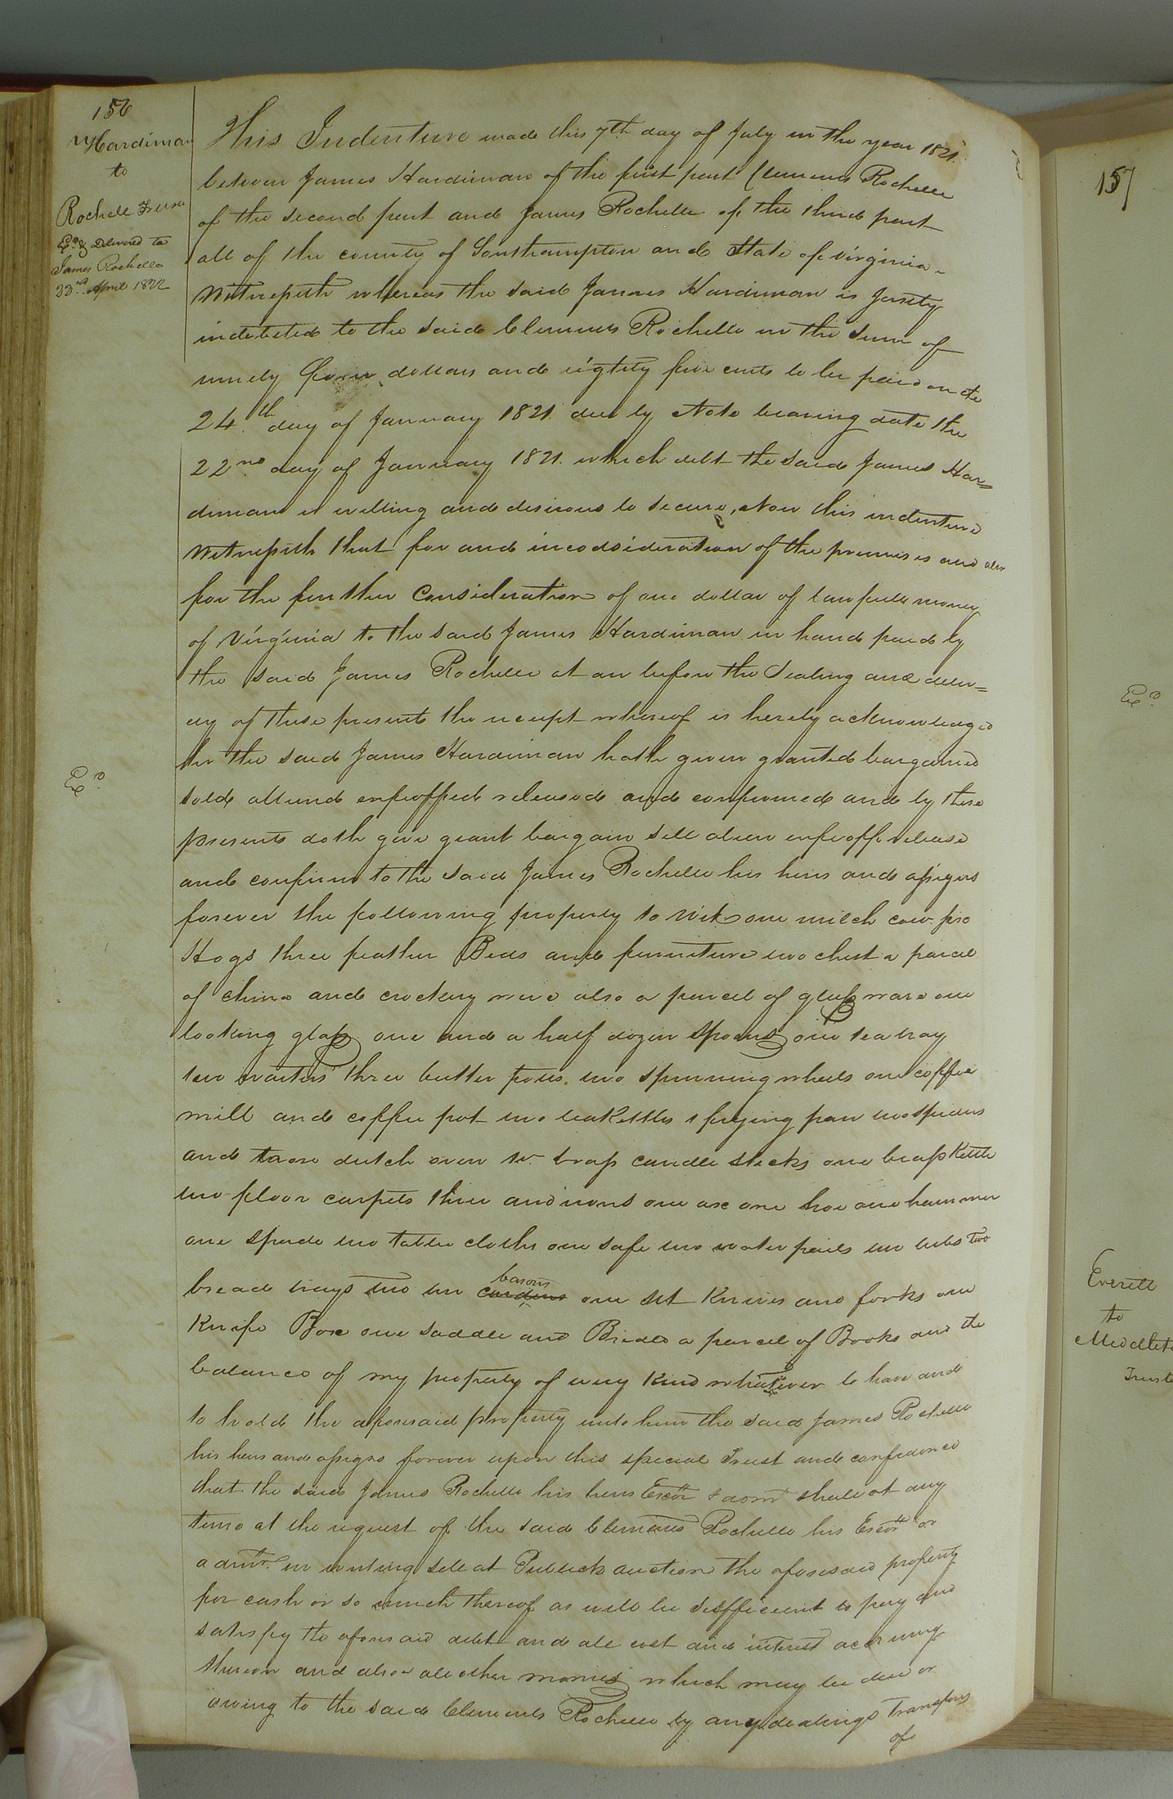 156
Hardiman
to
Rochell Trust
Exd & Delivered to
James Rochelle
23rd April 1822
This Indenture made this 7th day of July in the year 1821.
between James Hardiman of the first part Clements Rochelle
of the second part and James Rochelle of the third part
all of the county of Southampton and State of Virginia -
Witnesseth whereas the said James Hardiman is justly
indebted to the said Clements Rochelle in the sum of
ninety four dollars and eighty five cents to be paid on the
24th day of January 1821. due by Note bearing date the
22nd day of January 1821. which debt the said James Har=
diman is willing and desirous to secure, Now this indenture
Witnesseth that for and in consideration of the premises and also
for the further Consideration of one dollar of lawfull money
of Virginia to the said James Hardiman in hand paid by
the said James Rochelle at or before the Sealing and deliv=
ery of these presents the receipt whereof is hereby acknowledged
he the said James Hardiman hath given granted bargained
Exd
sold aliend enfeoffed released and confirmed and by these
presents doth give grant bargain sell alien enfeoff release
and confirm to the said James Rochelle his heirs and assigns
forever the following property to Wit one milch cow five
Hogs three feather Beds and furniture two chest a parcel
of china and crockery ware also a parcel of glass ware one
looking glass one and a half dozen spoons one tea tray
two waiters three butter pots. two spinning wheels one coffee
mill and coffee pot two tea Kettles 1 frying pan two spiders
and one dutch oven two brass candle sticks one brass Kettle
two floor carpets three andirons one axe one hoe one hammer
one spade two table cloths one safe two water pails two tubs two
bread trays two tin basons one set Knives and forks one
Knife Box one saddle and Bridle a parcel of Books and the
balance of my property of every Kind whatever to have and
to hold the aforesaid property unto him the said James Rochelle
his heirs and assigns forever upon this special Trust and confidence
that the said James Rochelle his heirs Exor & admr shall at any
time at the request of the said Clements Rochelle his Exor or
admr in writing sell at Publick auction the aforesaid property
for cash or so much thereof as will be sufficient to pay and
satisfy the aforesaid debt and all cost and interest accruing
thereon and also all other monies which may be due or
owing to the said Clements Rochelle by any dealings Transfers
of
157
Exd
Everett
to